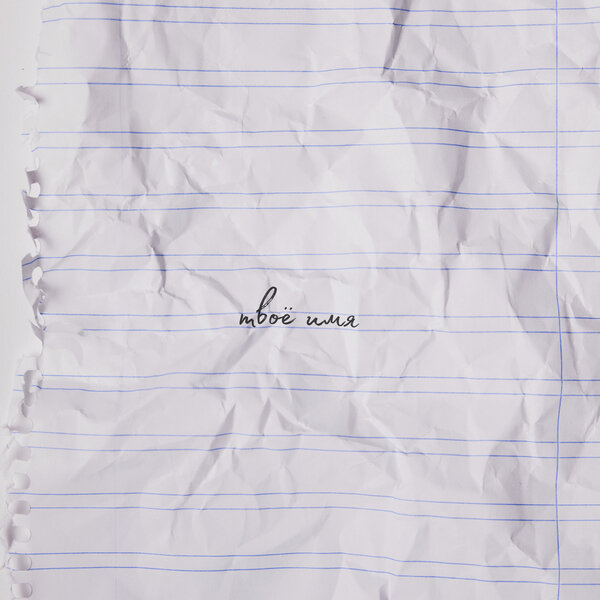 твоё имя